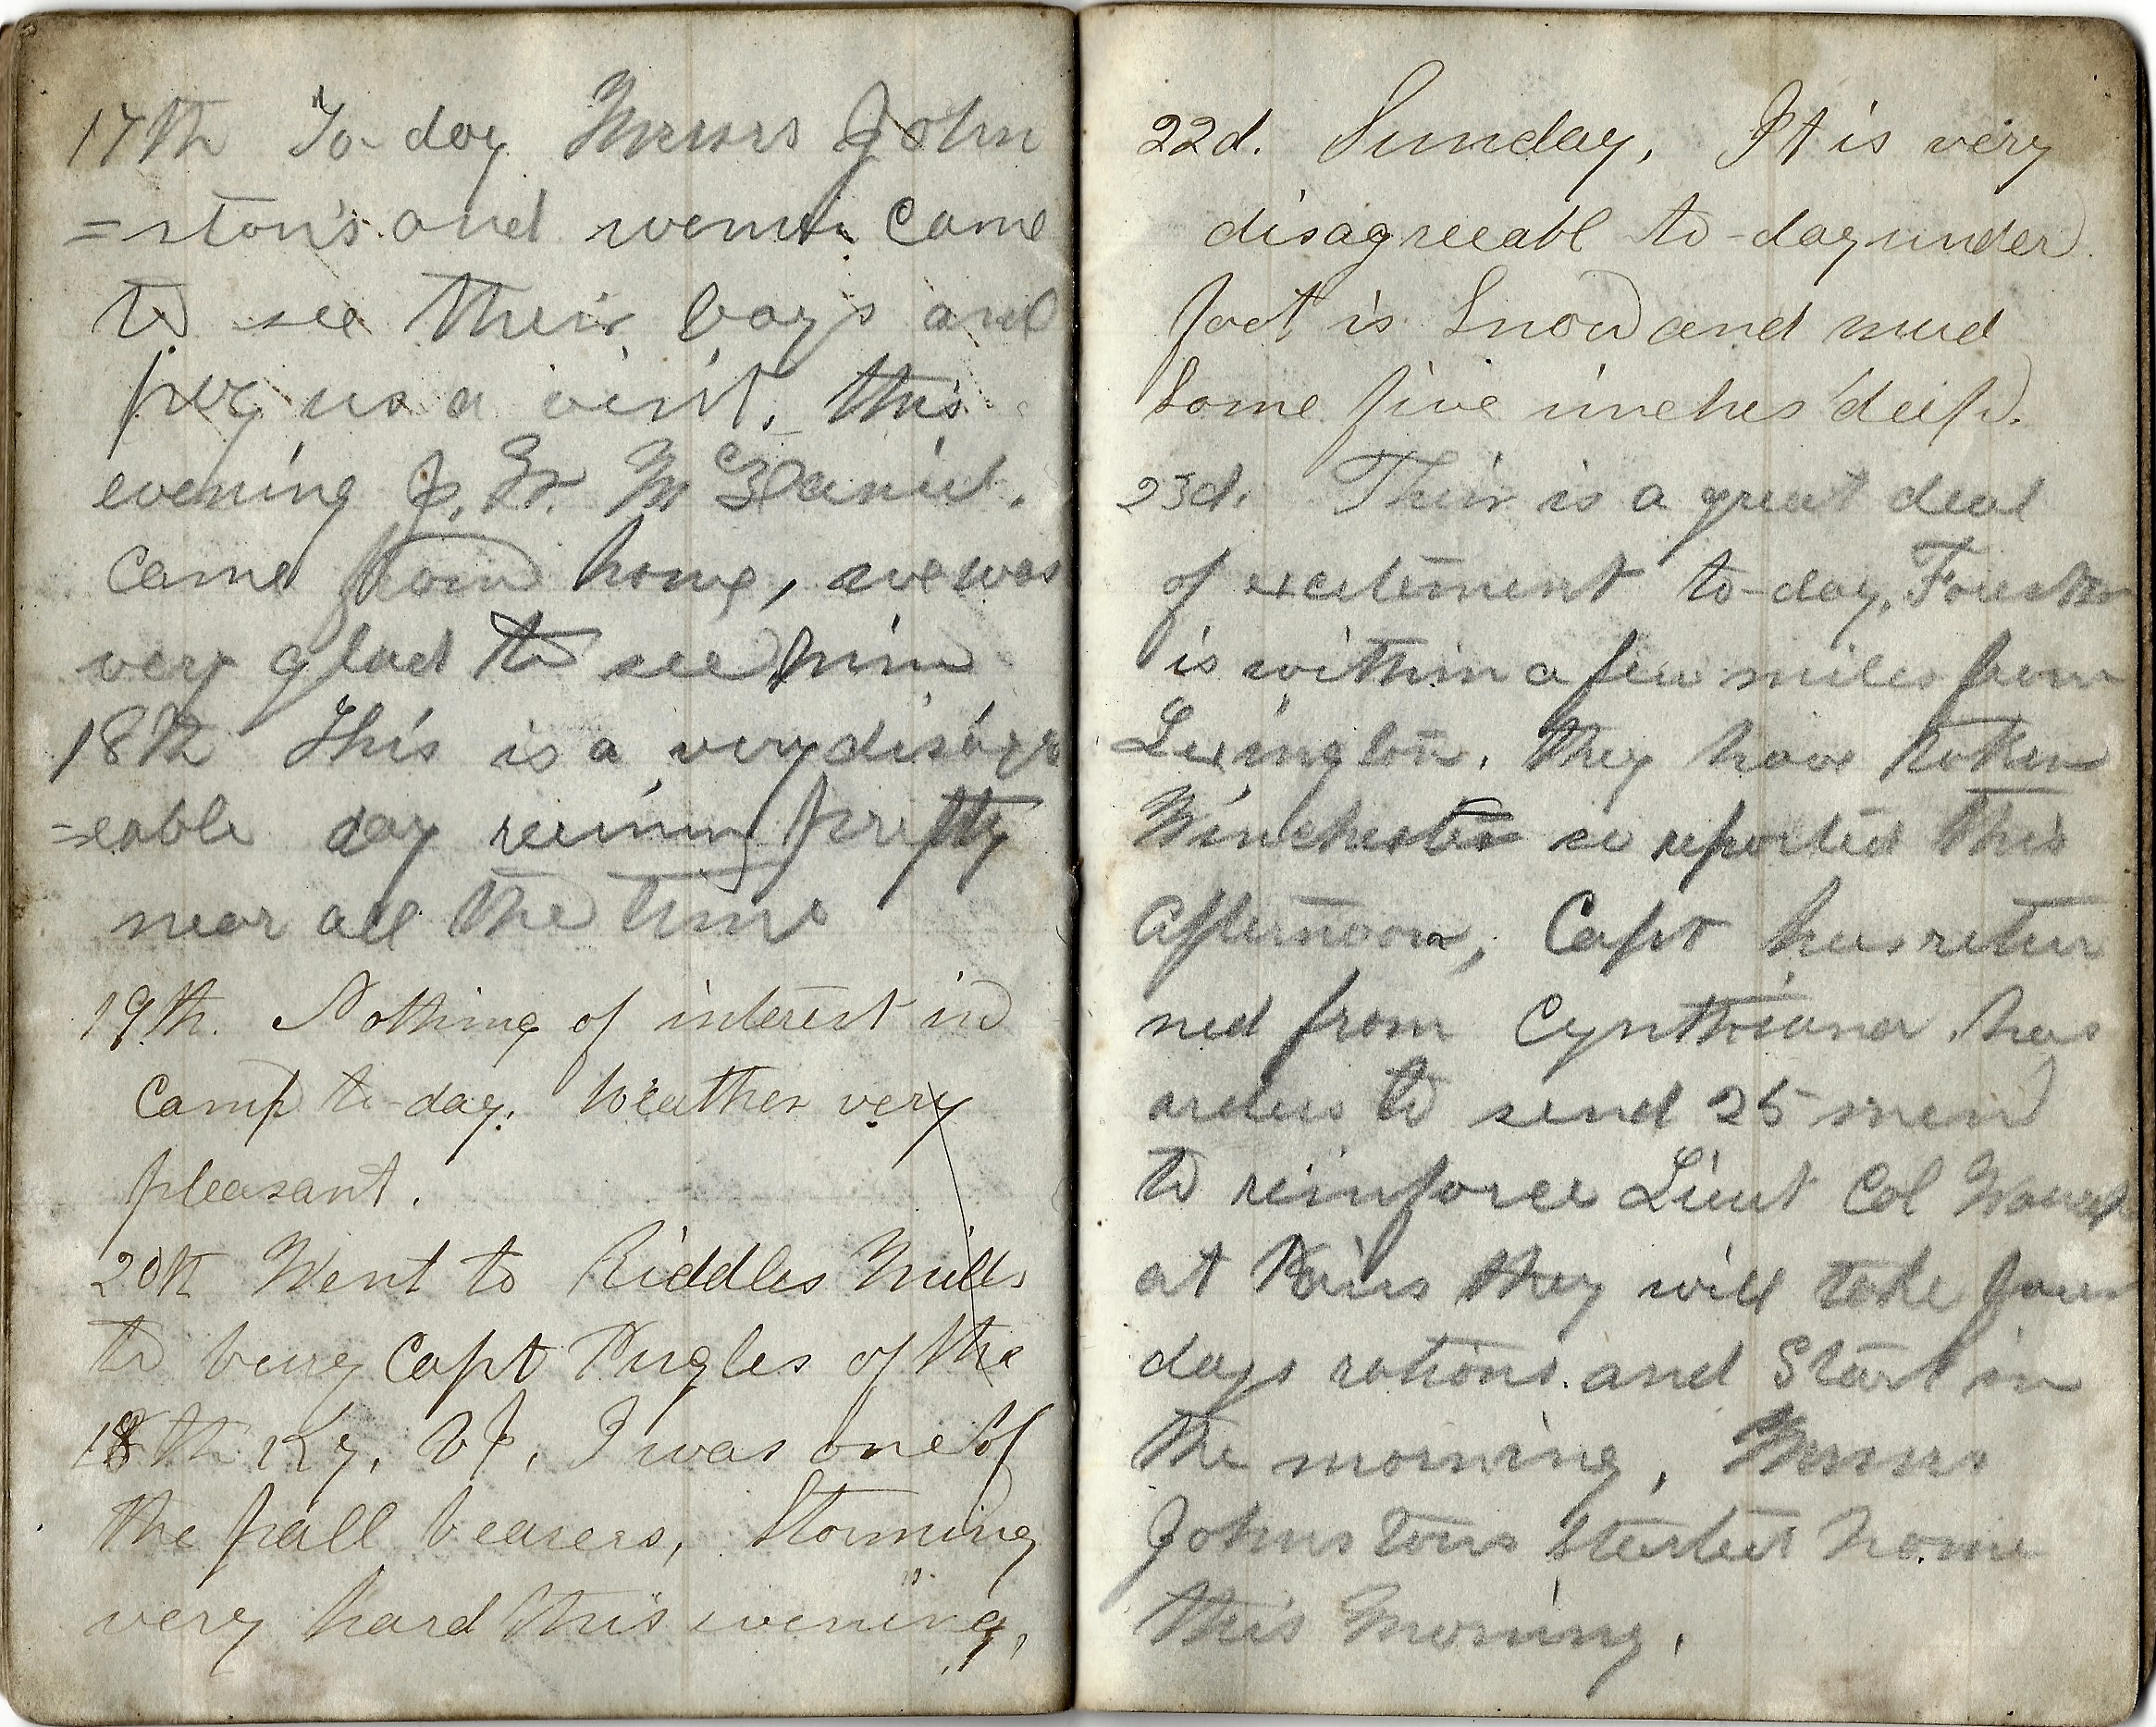 17th To-day Messrs John
=ston's and   came
to see their boys and
pay us a visit, this
evening J. Mc Daniel.
came from home, we was
very glad to see him
18th This is a very disagr
=eable day reining pretty
near all the time
19th. Nothing of interest in
camp to-day. Weather very
pleasant.
20th Went to Riddles Mills
to bury Capt Pugles of the
18th Ky. V I, I was one of
the pall bearers, Storming
very hard this evening,
22d. Sunday, It is very
disagreeabl to-day under
foot is Snow and mud
Some five inches deep.
23d. Their is a great deal
of excitement to-day,
is within a few miles from
Lexington, they have token
Winchester so reported this
afternoon, Capt has retur
ned from Cynthiana has
orders to send 25 men
to reinforce Lieut Col
at Paris they will take four
days rations and Start in
the morning, Messrs
Johnstons started home
this Morning.